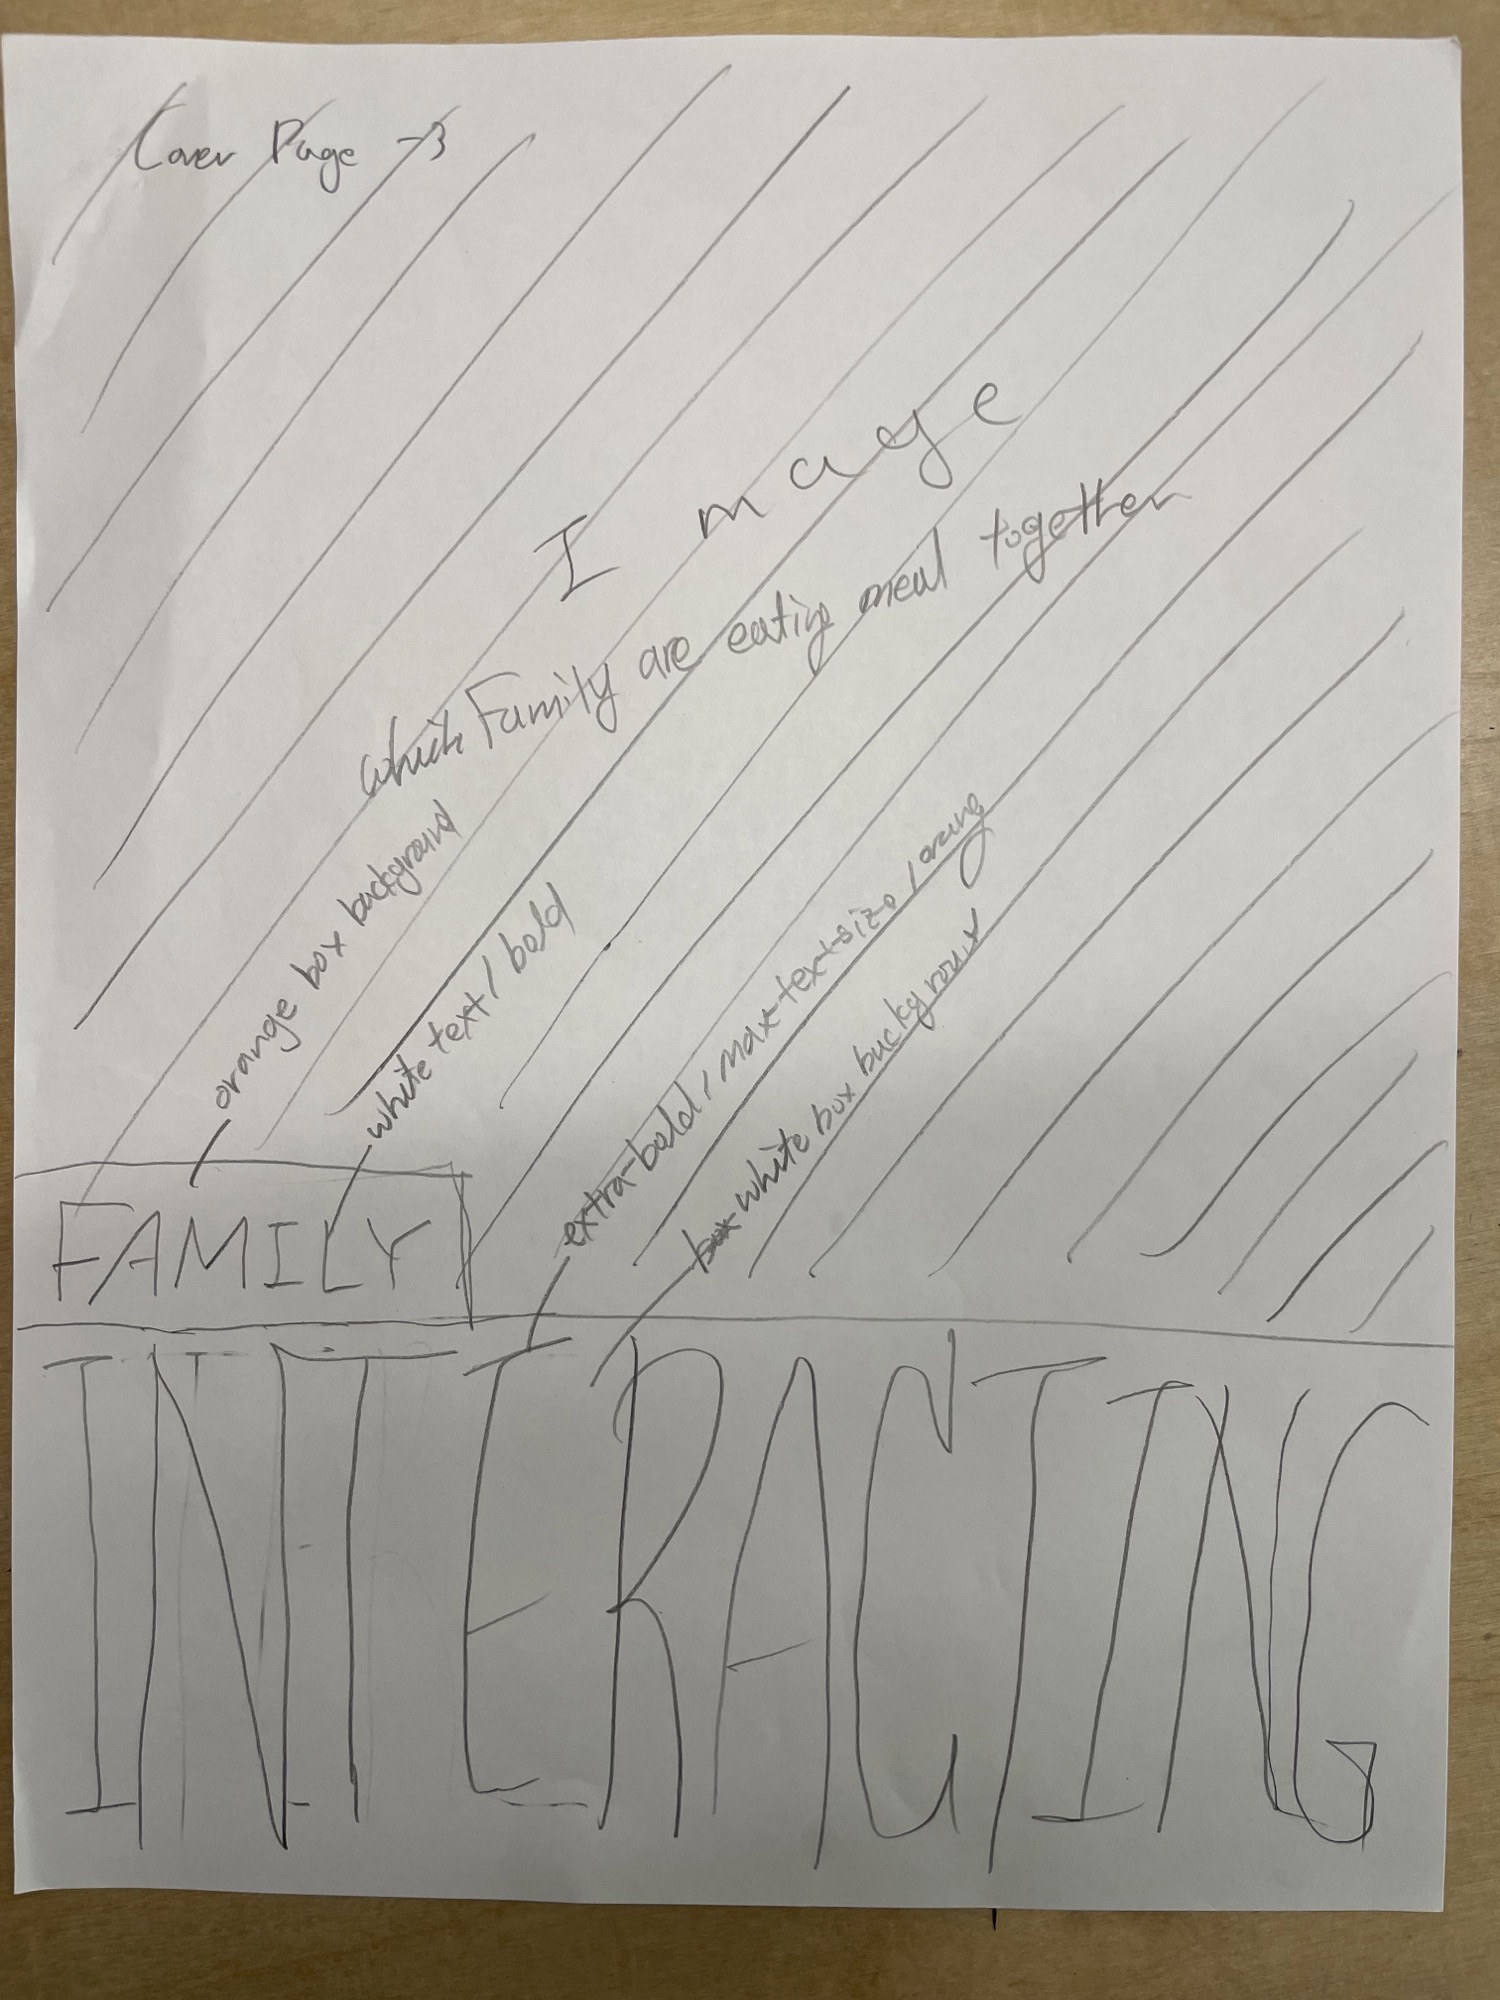 Cover Page -3
Image
which Family are eating meal together
orange box background
white text / bold
extra-bold / max-text-size / orang
white box background
FAMILY
INTERACTING